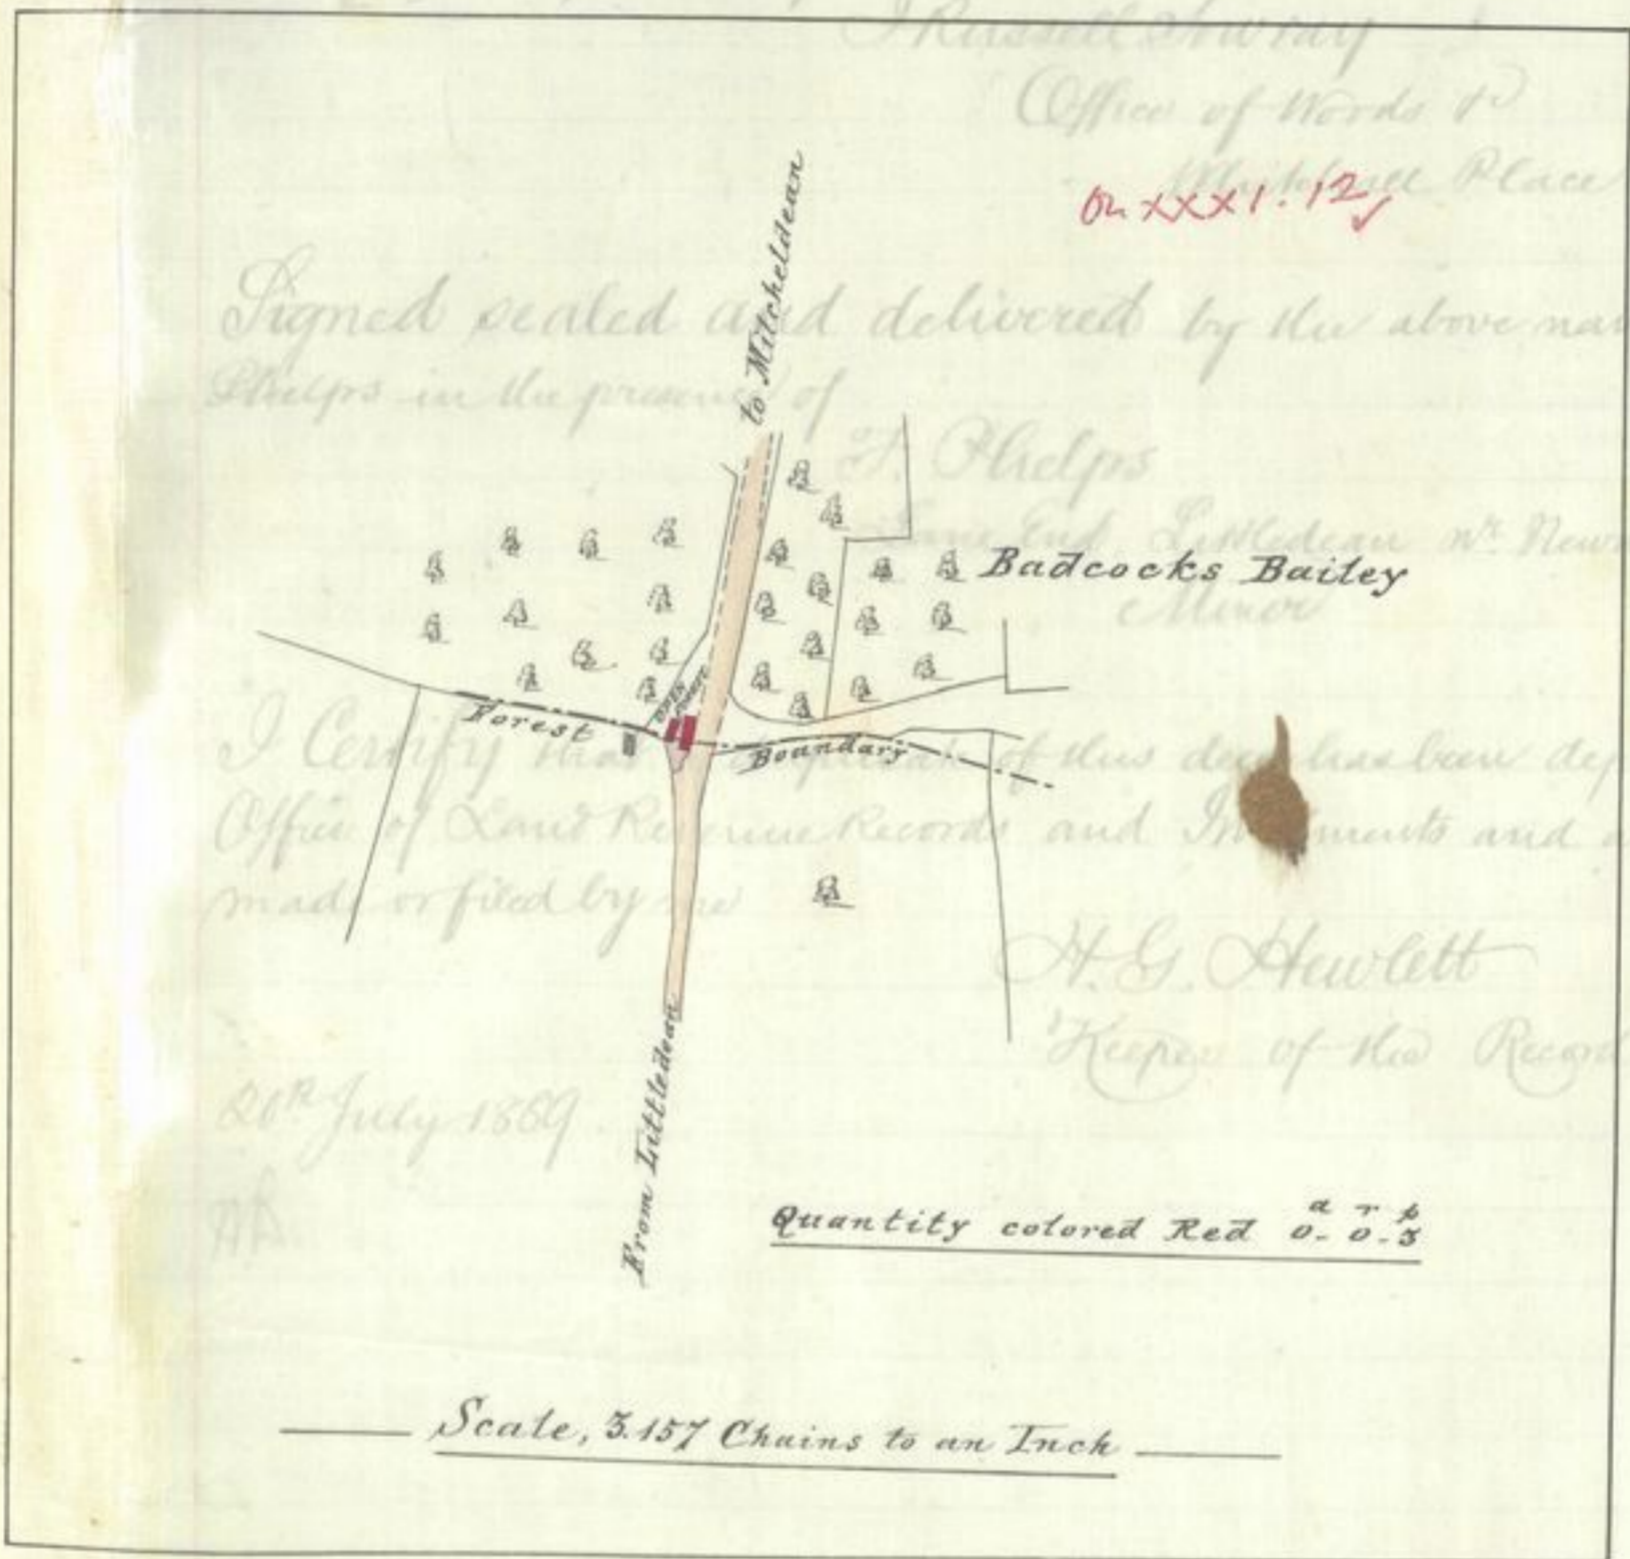 J Russell Sowray
Office of Woods &
Whitehall Place
On XXXI. 12
to Mitcheldean
Signed sealed and delivered by the above nam
Phelps in the presence of
T. Phelps
Lane End Littledean Nr. Newn
Miner
Badcocks Bailey
Forest Boundary
I Certify that a duplicate of this deed has been dep
Office of Land Revenue Records and Inrolments and a
made or filed by me
H. G. Hewlett
Keeper of the Record
From Littledean
20th July 1889.
a r p
Quantity colored Red 0-0-3
Scale, 3.157 Chains to an Inch